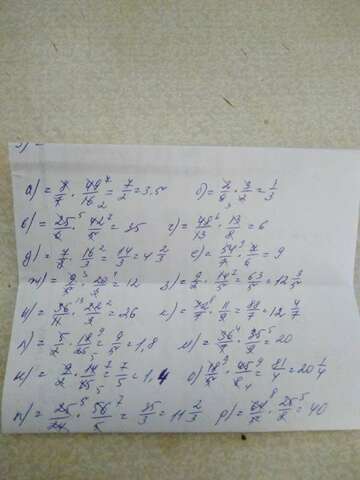 а) = 8/7 · 49/16 = 7/2 = 3,5 б) = 2/9 · 3/2 = 1/3
в) = 25/6 · 42/5 = 35 г) = 48/13 · 13/8 = 6
д) = 7/8 · 16/3 = 14/3 = 4 2/3 е) = 54/7 · 7/6 = 9
= 12 з) = 9/2 · 14/5 = 63/5 = 12 3/5
и) = 36/11 · 22/ = 26 = 72/7 · 11/9 = 88/7 = 12 4/7
л) = 5/2 · 18/25 = 9/5 = 1,8 м) = 36/7 · 35/9 = 20
н) = · 14/25 = 7/5 = 1,4 о) = 18/5 · 45/8 = 81/4 = 20 1/4
п) = 25/24 · 56/5 = 35/3 = 11 2/3 р) = 64/ · 25/ = 40